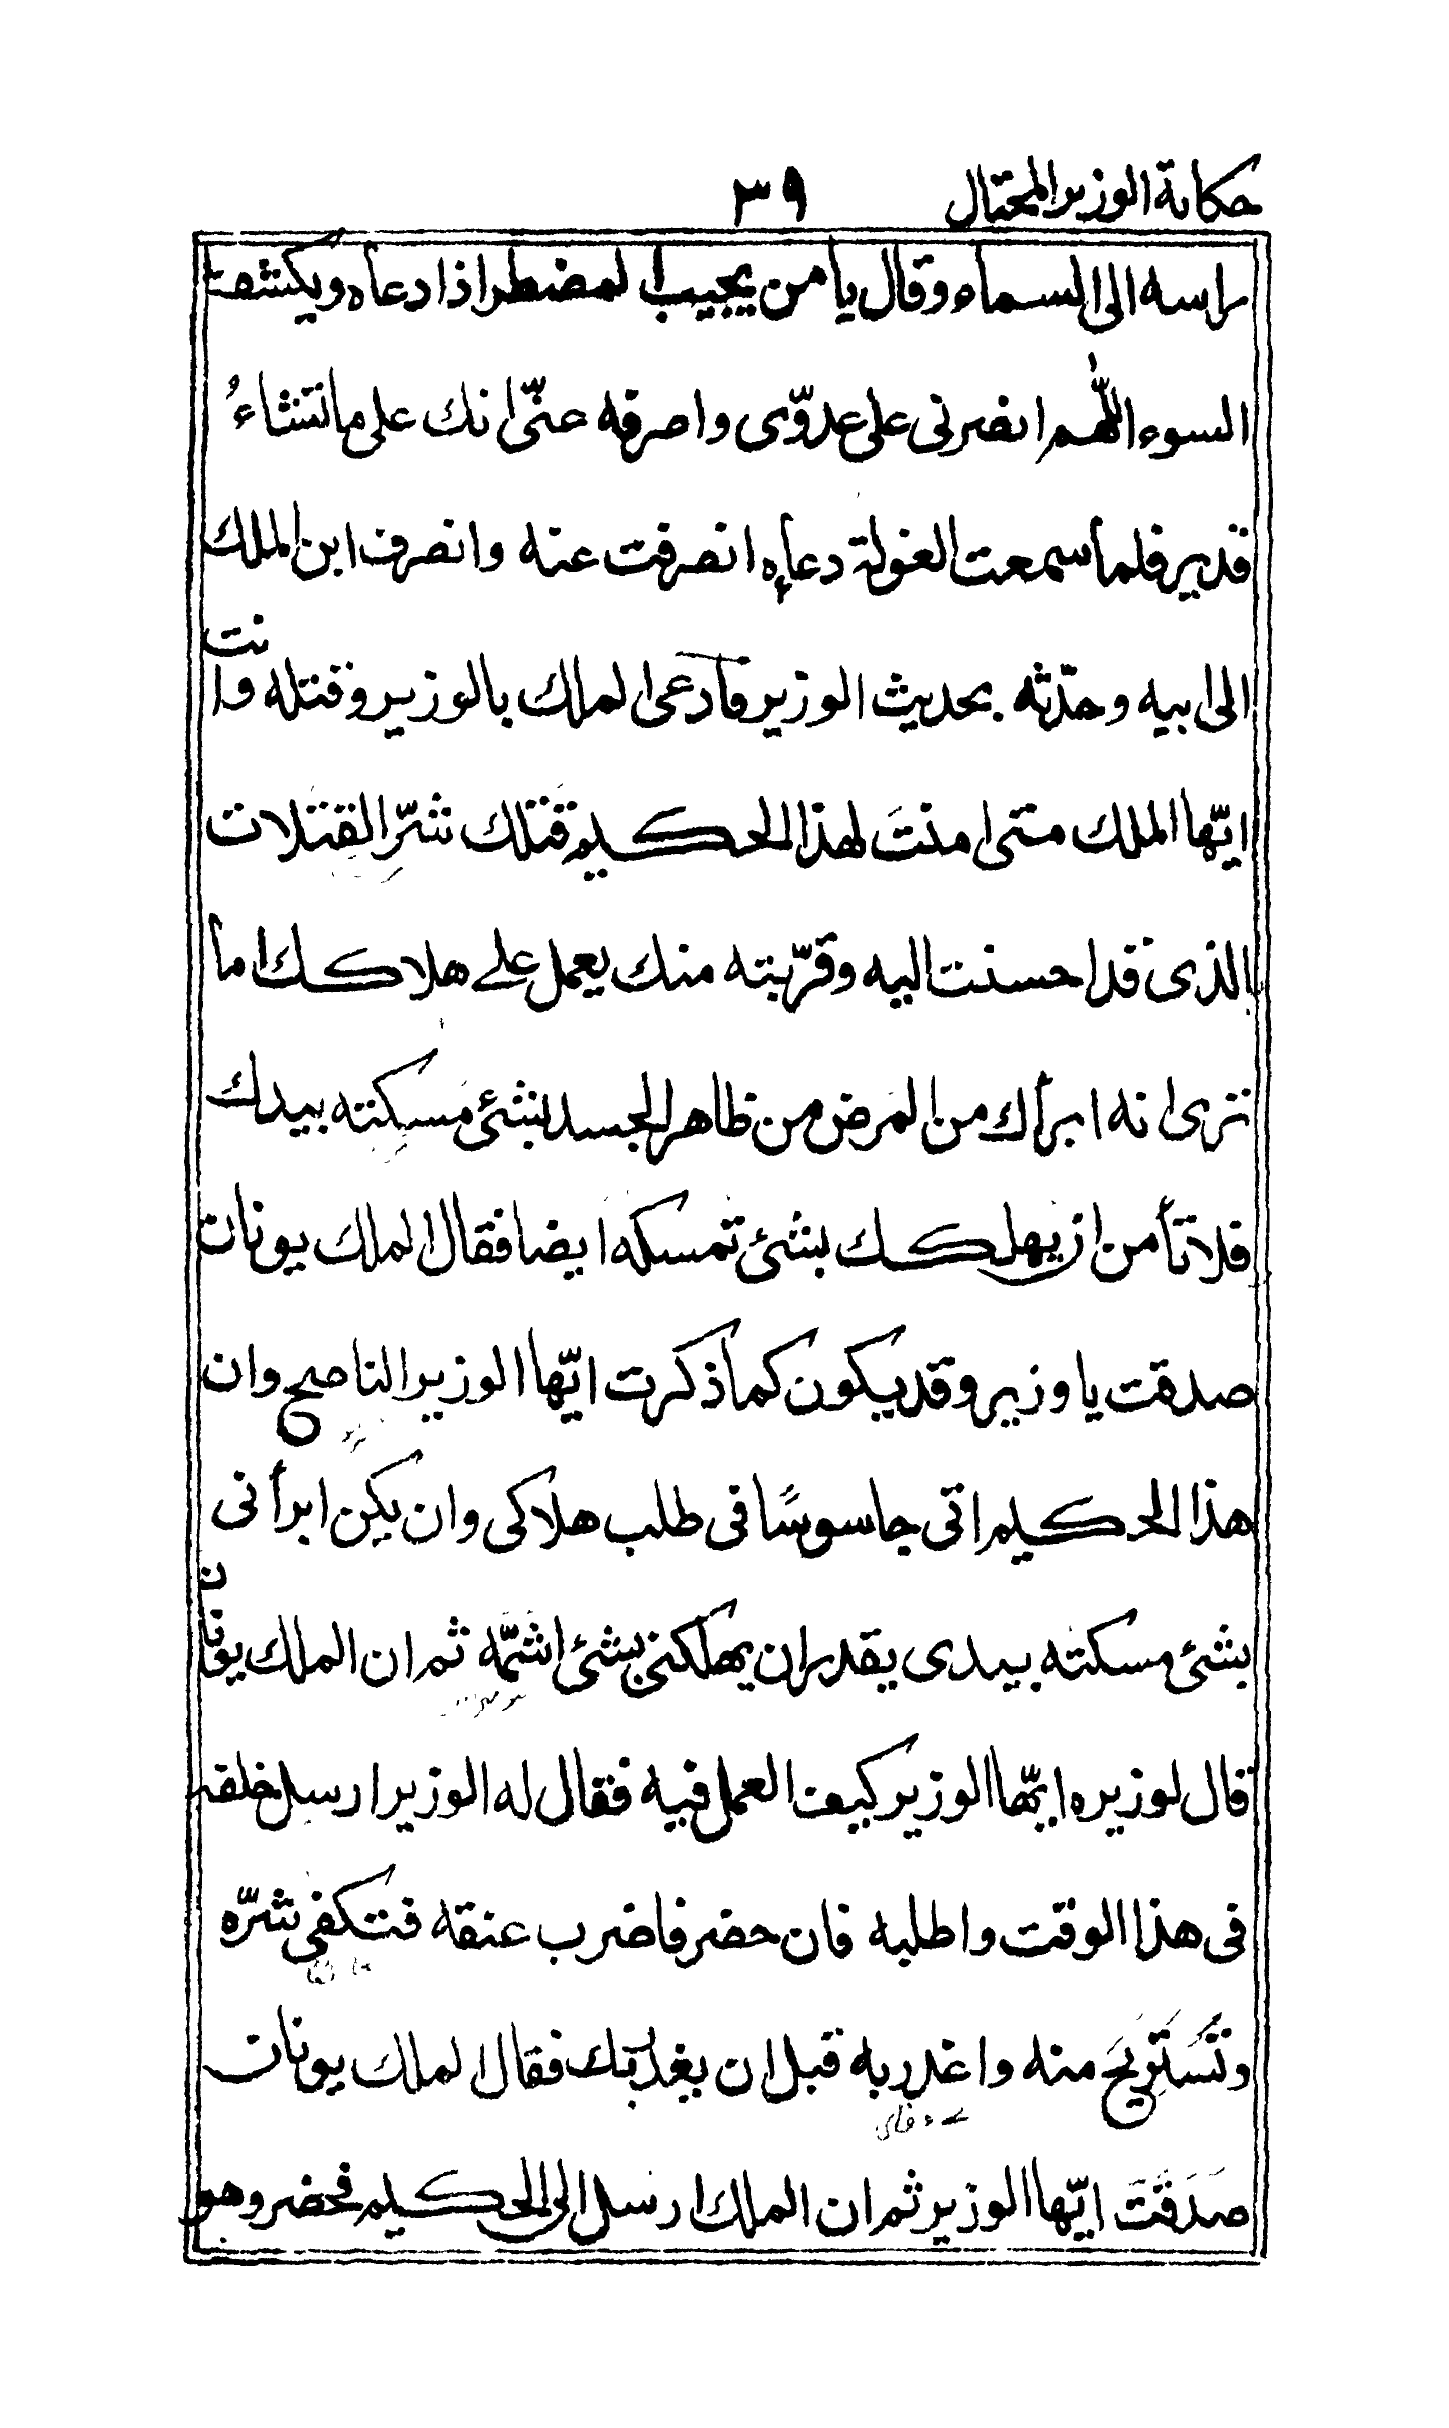 حكاية الوزير المحتال ٣٩
راسه الى السماء وقال يا من يجيب المضطر اذا دعاه ويكشف
السوء اللّٰهم انصرنى على عدوّى واصرفه عنّى انك على ما تشاءُ
قدير فلما سمعت الغولة دعاءه انصرفت عنه وانصرف ابن الملك
الى ابيه وحدّثه بحديث الوزير فادعى الملك بالوزير وقتله وانت
ايّها الملك متى امنتَ لهذا الحكيم قتلك شرّ القتلات
الذى قد احسنت اليه وقرّبته منك يعمل على هلاكك اما
ترى انه ابرأك من المرض من ظاهر الجسد بشئ مسكته بيدك
فلا تأمن ان يهلكك بشئ تمسكه ايضا فقال الملك يونان
صدقت يا وزير وقد يكون كما ذكرت ايّها الوزير الناصح وان
هذا الحكيم اتى جاسوسًا فى طلب هلاكى وان يكن ابرأنى
بشئ مسكته بيدى يقدر ان يهلكنى بشئ اشمّه ثم ان الملك يونان
قال لوزيره ايّها الوزير كيف العمل فيه فقال له الوزير ارسل خلفه
فى هذا الوقت واطلبه فان حضر فاضرب عنقه فتكفى شرّه
وتَسْتَرِيحَ منه واغدر به قبل ان يغدر بك فقال الملك يونان
صَدَقْتَ ايّها الوزير ثم ان الملك ارسل الى الحكيم فحضر وهو